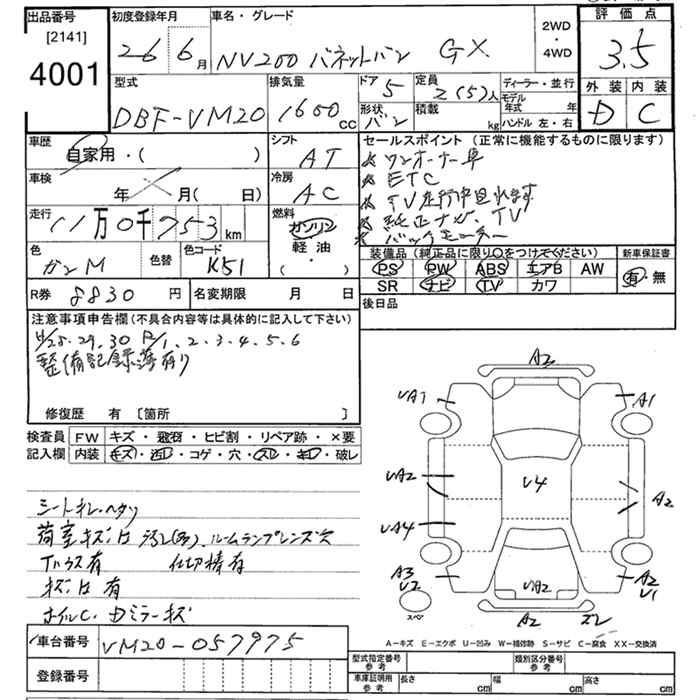 出品番号
[2141]
4001
初度登録年月
26 6月
車名・グレード
NV200 バネットバン GX
2WD
・
4WD
評価点
3.5
外装 内装
D C
型式
DBF-VM20
排気量
1600 CC
ドア
5
形状
バン
定員
2(5)人
積載
kg
ディーラー・並行
モデル年式 年
ハンドル 左・右
車歴
自家用・( )
シフト
AT
車検
年 月(日)
冷房
AC
走行
11万0千753km
燃料
ガソリン
軽油
・( )
色
ガンM
色替
色コード
K51
R券 8830円
名変期限 月 日
セールスポイント(正常に機能するものに限ります)
ワンオーナー車
ETC
TV走行中見れます
純正ナビ、TV
バックモニター
装備品(純正品に限り○をつけてください)
PS PW ABS エアB AW
SR ナビ TV カワ
新車保証書
有・無
後日品
注意事項申告欄(不具合内容等は具体的に記入して下さい)
H28.29.30 R1.2.3.4.5.6
整備記録簿有り
修復歴 有 [箇所 ]
検査員 FW キズ・飛石・ヒビ割・リペア跡・×要
記入欄 内装 キズ・汚レ・コゲ・穴・スレ・キレ・破レ
シートキレ・ヘタリ
荷室キズ凹 汚レ(多)、ルームランプレンズ欠
Tハウス有 仕切棒有
キズ凹有
ホイルC・Dミラーキズ
A2
UA7
A1
UA2
U4
A2
UA4
A3
U2
UA2
A2
U1
スペア
A2
ズレ
A-キズ E-エクボ U-凹み W-補修跡 S-サビ C-腐食 XX-交換済
車台番号 VM20-057975
登録番号
型式指定番号参考
類別区分番号参考
車庫証明用参考 長さ cm 幅 cm 高さ cm